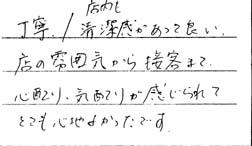 店内も
丁寧。/清潔感があって良い。
店の雰囲気から接客まで、
心配り、気配りが感じられて
とても心地よかったです。